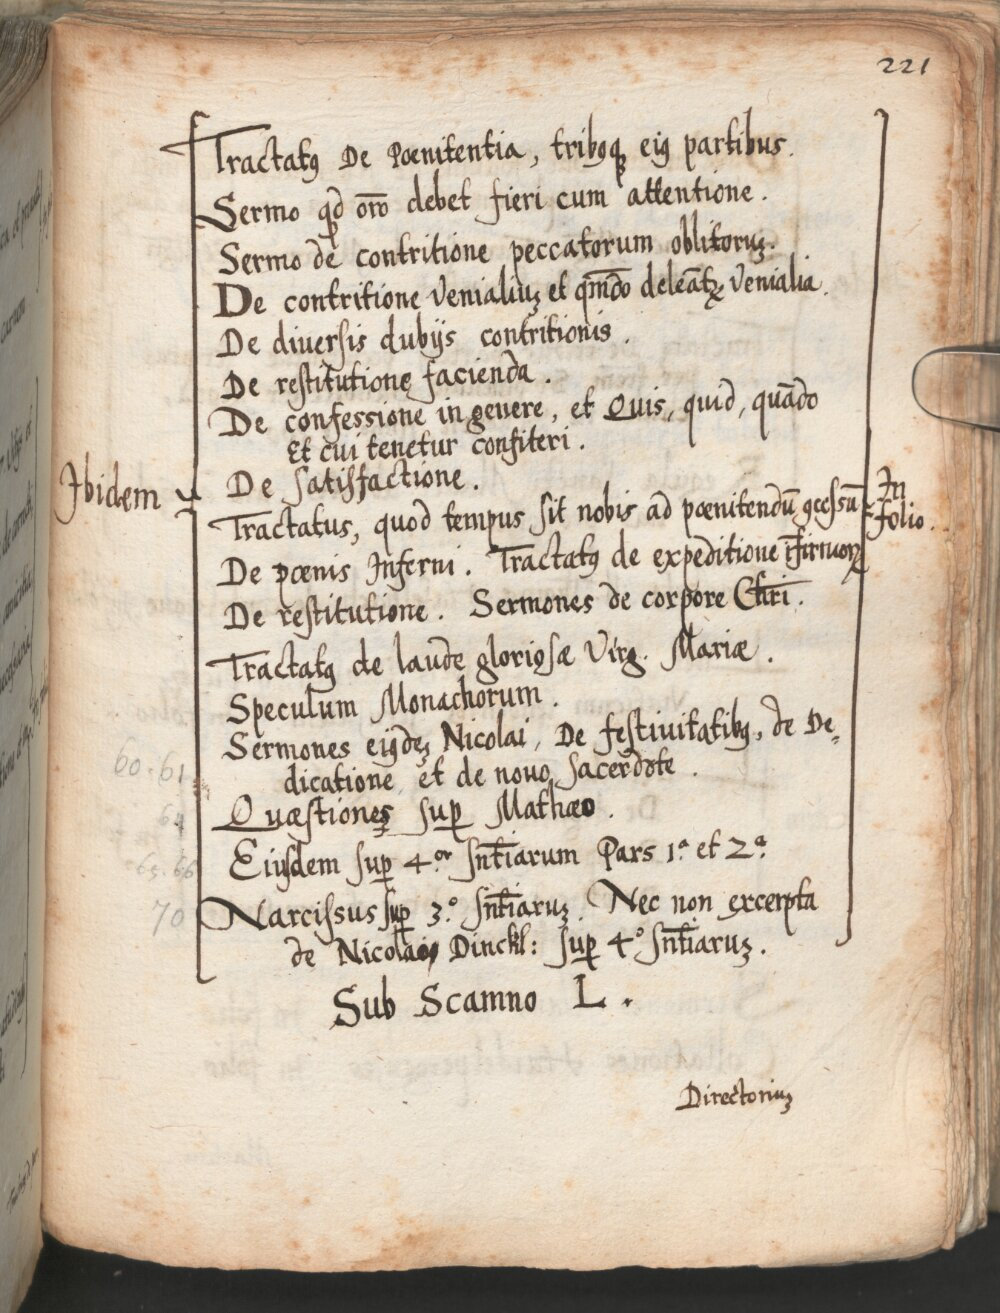 221
Tractatꝰ De Poenitentia, tribꝰqꝫ eiꝰ partibus.
Sermo qd orō debet fieri cum attentione.
Sermo de contritione peccatorum oblitoruꝫ.
De contritione Venialiuꝫ et qmōdo deleātꝛ venialia.
De diversis dubijs contritionis.
De restitutione facienda.
De confessione in genere, et Quis, quid, quādo
Et cui tenetur confiteri.
Ibidem
De satisfactione.
In folio.
Tractatus, quod tempus sit nobis ad poenitendū ꝯcessū
De poenis Inferni. Tractatꝰ de expeditione īfirmoꝝ
De restitutione. Sermones de corpore Chri̅.
Tractatꝰ de laude gloriosæ Virg. Mariæ.
Speculum Monachorum.
Sermones eiꝰdeꝫ Nicolai, De festiuitatibꝰ, de De-
dicatione, et de novo sacerdote.
Quæstiones sup̱ Mathæo.
Eiusdem sup̱ 4.or Sn̅tiarum Pars 1.a et 2.a
Narcissus sup̱ 3.o Sn̅tiaruꝫ. Nec non excerpta
de Nicolao Dinckl: sup̱ 4.o Sn̅tiaruꝫ.
Sub Scamno L.
Directoriuꝫ
60.61
64
65.66
70